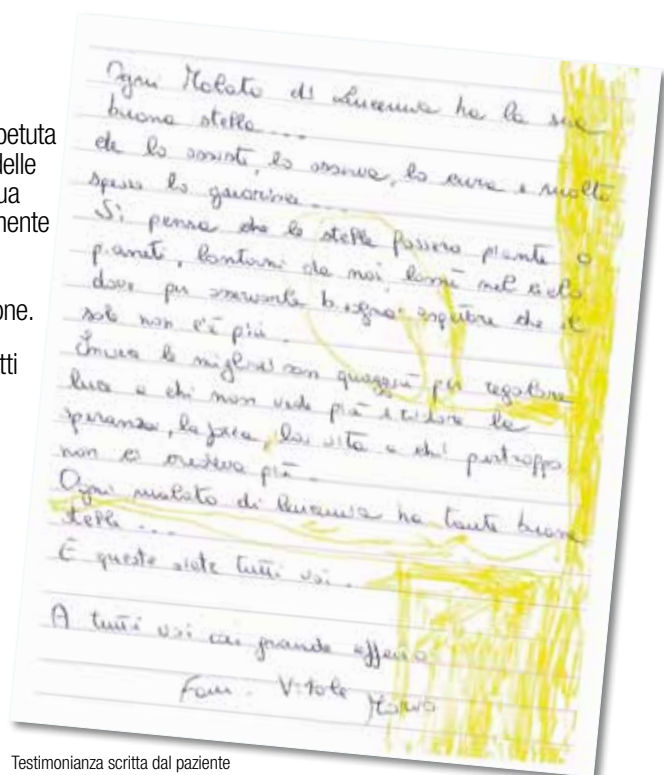 petuta
delle
ua
nente
one.
tti
Ogni Malato di Leucemia ha la sua
buona stella...
che lo assiste, lo osserva, lo cura e molto
spesso lo guarisce...
Si pensa che le stelle fossero piante o
pianeti, lontani da noi, lassù nel cielo
dove per osservarle bisogna aspettare che il
sole non c'è più.
Invece le migliori son quaggiù per regalare
luce a chi non vede più e ridare la
speranza, la forza, la vita a chi purtroppo
non ci credeva più.
Ogni malato di leucemia ha tante buone
stelle...
E queste siete tutti voi.
A tutti voi con grande affetto
Fam. Vitale
Marco
Testimonianza scritta dal paziente